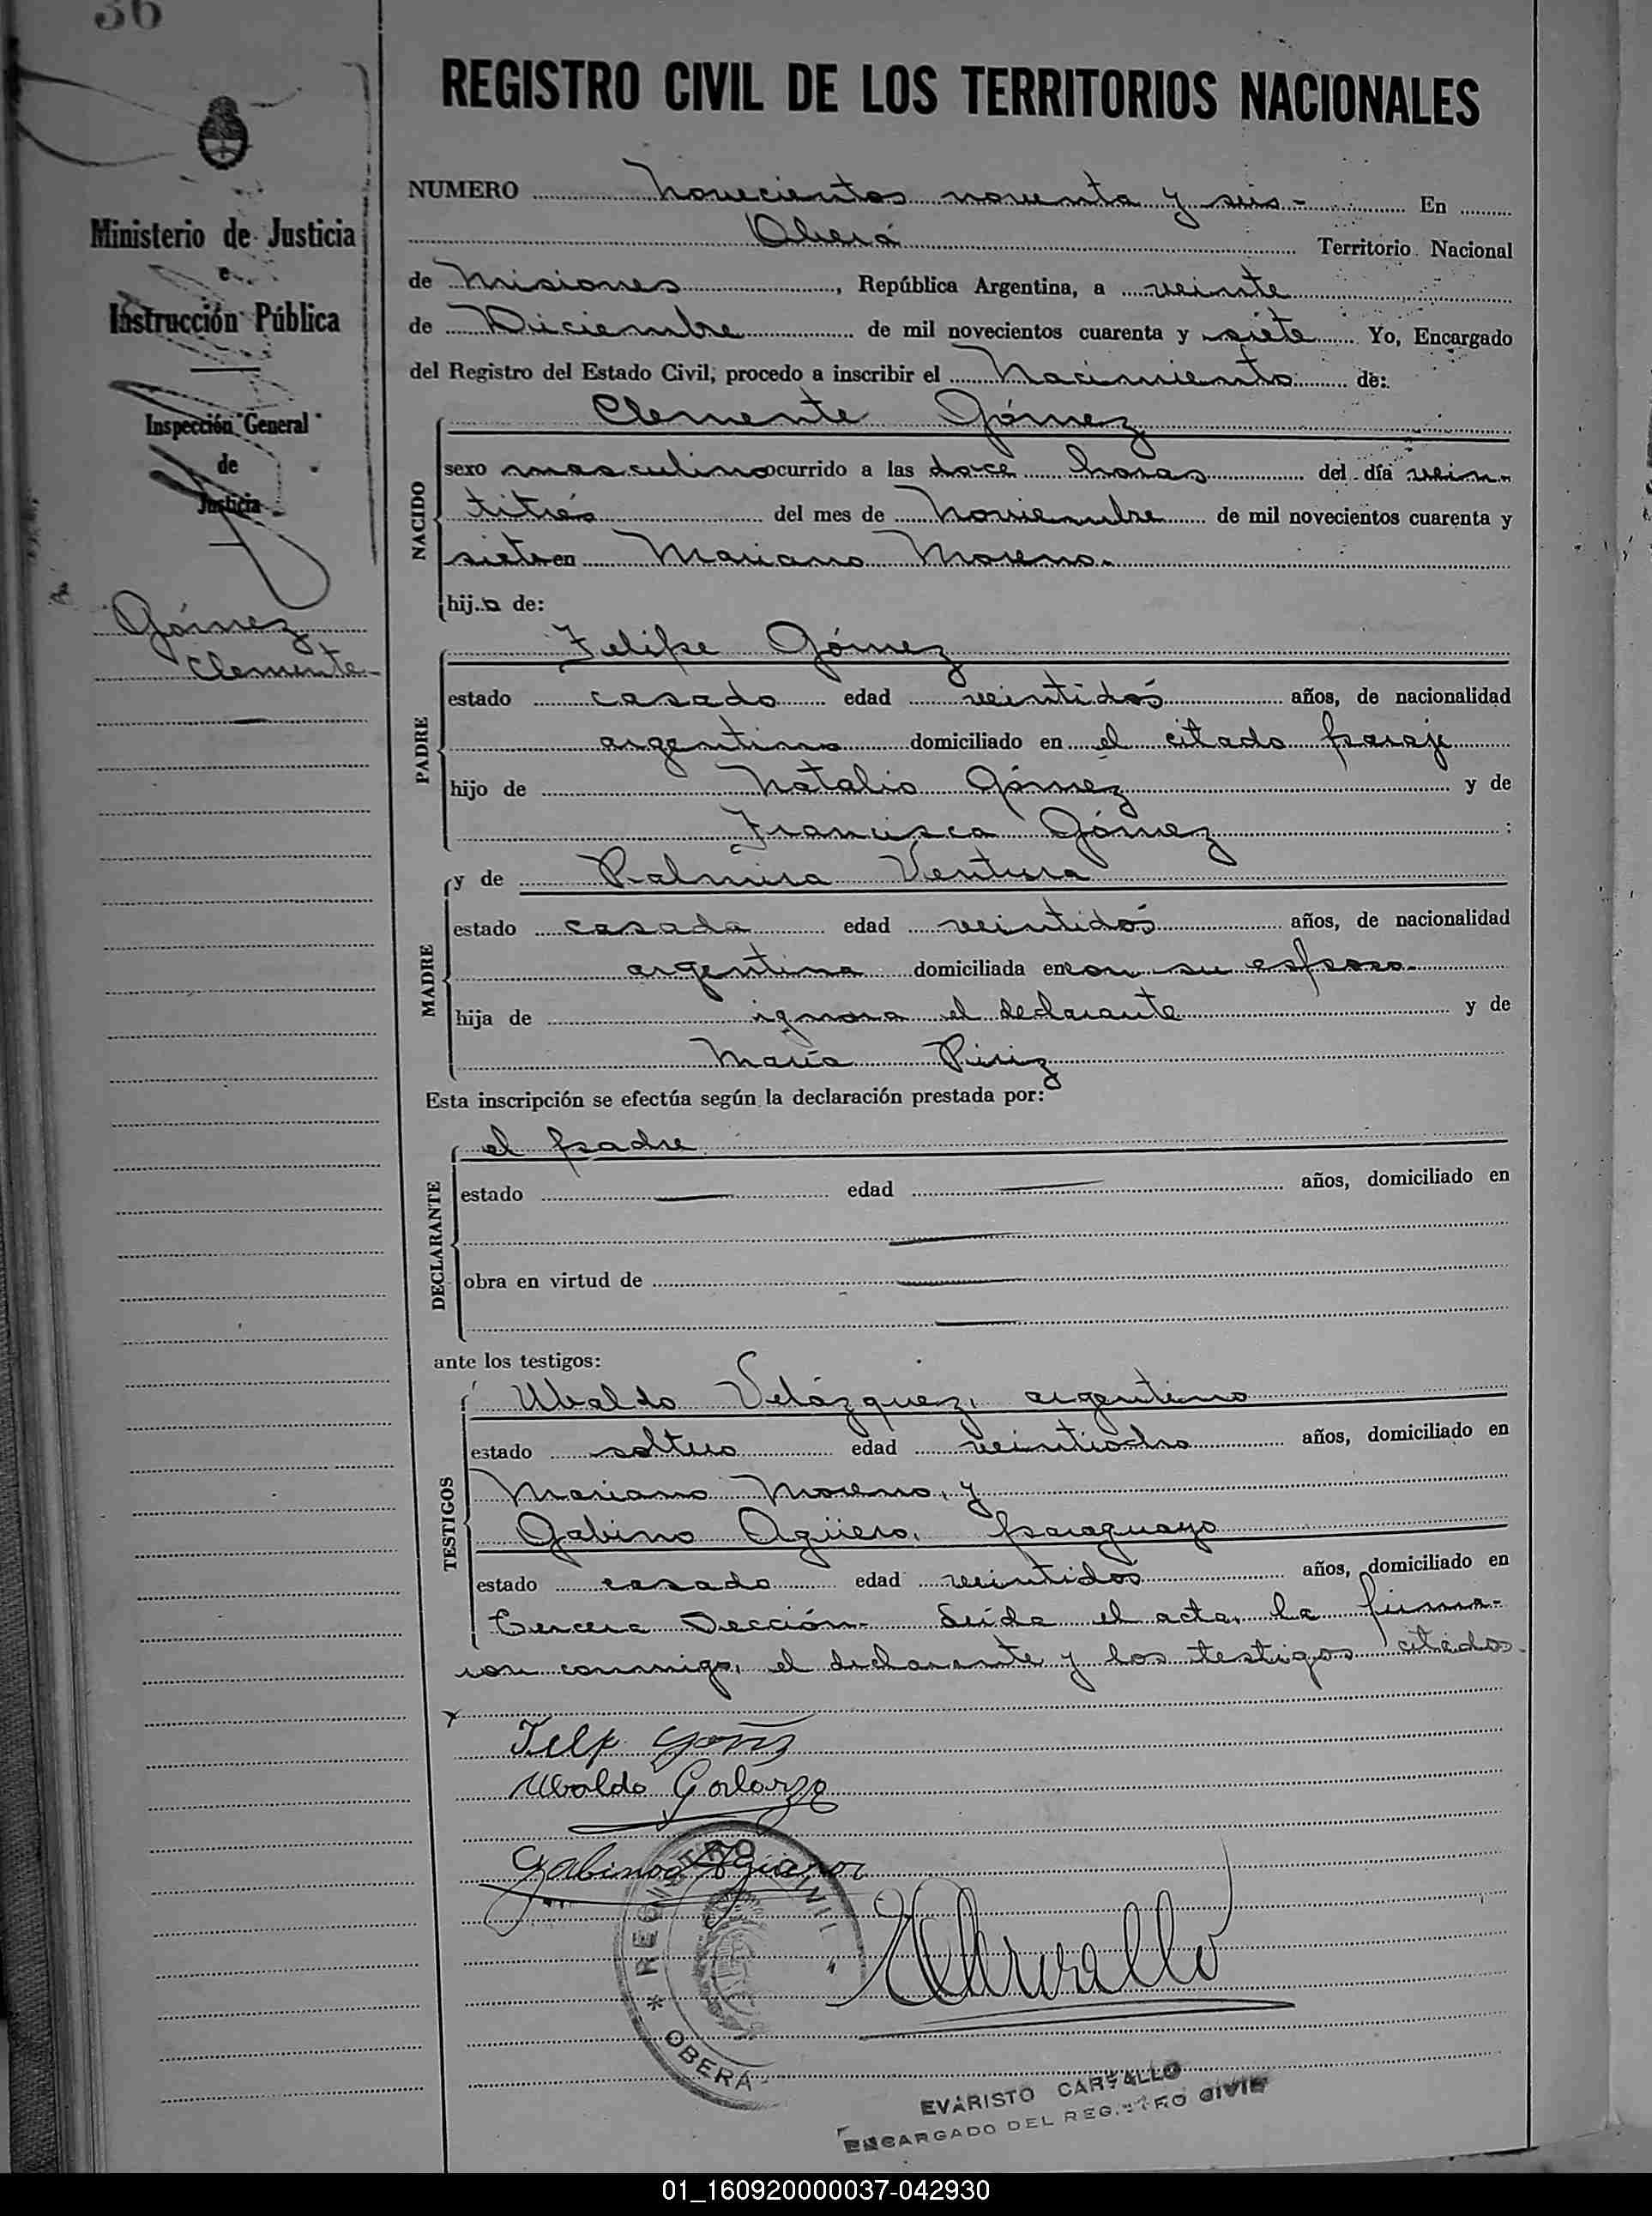 36
REGISTRO CIVIL DE LOS TERRITORIOS NACIONALES
Ministerio de Justicia
e
Instrucción Pública
Inspección General
de
Justicia
Gómez
Clemente
NUMERO novecientos noventa y seis - En
Oberá Territorio Nacional
de Misiones, República Argentina, a veinte
de Diciembre de mil novecientos cuarenta y siete Yo, Encargado
del Registro del Estado Civil, procedo a inscribir el Nacimiento de:
Clemente Gómez
NACIDO
sexo masculino ocurrido a las doce horas del día vein-
titrés del mes de Noviembre de mil novecientos cuarenta y
siete en Mariano Moreno.
hijo de:
Felipe Gómez
PADRE
estado casado edad veintidós años, de nacionalidad
argentino domiciliado en el citado paraje
hijo de Natalio Gómez y de
Francisca Gómez :
y de Palmira Ventura
MADRE
estado casada edad veintidós años, de nacionalidad
argentina domiciliada en con su esposo.
hija de ignora el declarante y de
María Piriz
Esta inscripción se efectúa según la declaración prestada por:
el padre
DECLARANTE
estado edad años, domiciliado en
obra en virtud de
ante los testigos:
Ubaldo Velázquez, argentino
TESTIGOS
estado soltero edad veintiocho años, domiciliado en
Mariano Moreno, y
Gabino Agüero, paraguayo
estado casado edad veintidos años, domiciliado en
Tercera Sección- Leída el acta, la firma-
ron conmigo, el declarante y los testigos citados-
x
Ubaldo
Gabino
REGISTRO CIVIL
* OBERA
EVARISTO CARVALLO
ENCARGADO DEL REGISTRO CIVIL
01_160920000037-042930